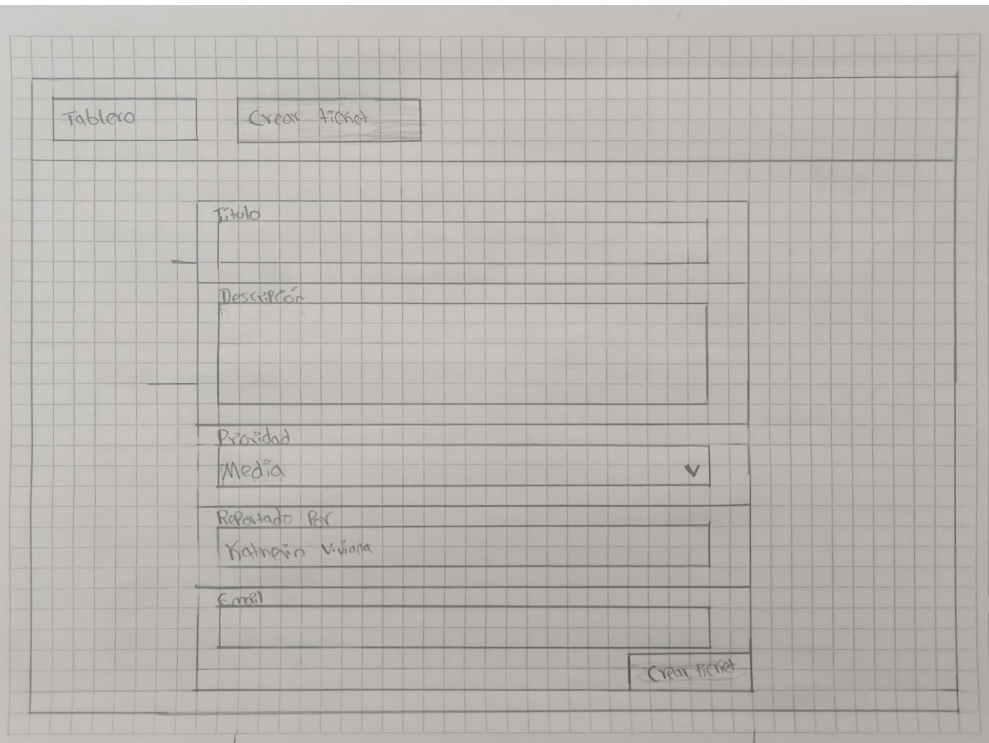 Tablero
Crear ticket
Título
Descripción
Prioridad
Media
Reportado Por
Katherin Viviana
Email
Crear ticket